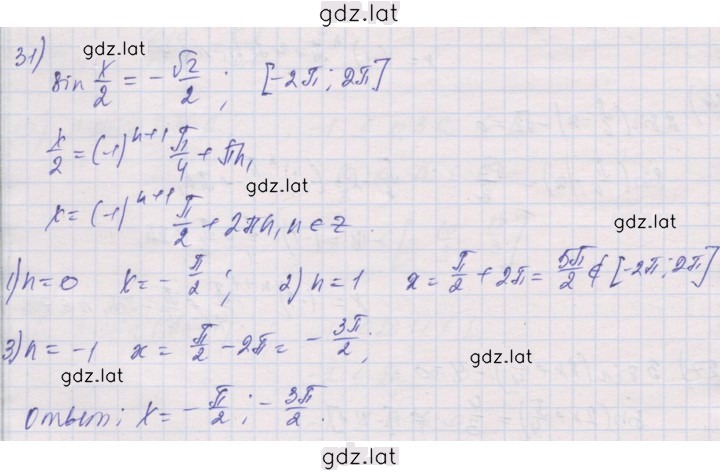 gdz.lat
gdz.lat
31) sin x/2 = - √2/2 ; [-2π; 2π]
x/2 = (-1)^{n+1} π/4 + πn,
gdz.lat
x = (-1)^{n+1} π/2 + 2πn, n ∈ Z.
gdz.lat
1) n = 0 x = - π/2 ; 2) n = 1 x = π/2 + 2π = 5π/2 ∉ [-2π; 2π]
3) n = -1 x = π/2 - 2π = - 3π/2 ;
gdz.lat
gdz.lat
Ответ: x = - π/2 ; - 3π/2 .
gdz.lat